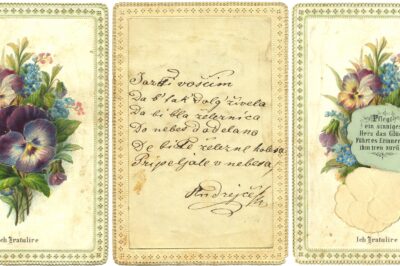 ch Gratulire
voščim
Da b' tak dolg' živela
Da bi bla železnica
Do nebes dodelana
De bodo železne kolesa
Pripeljale v nebesa,
Andrejčk
Pflege
ein sinniges
Herz das Glü
führt es Erinner
ihm treu zurü
Ich Gratulire